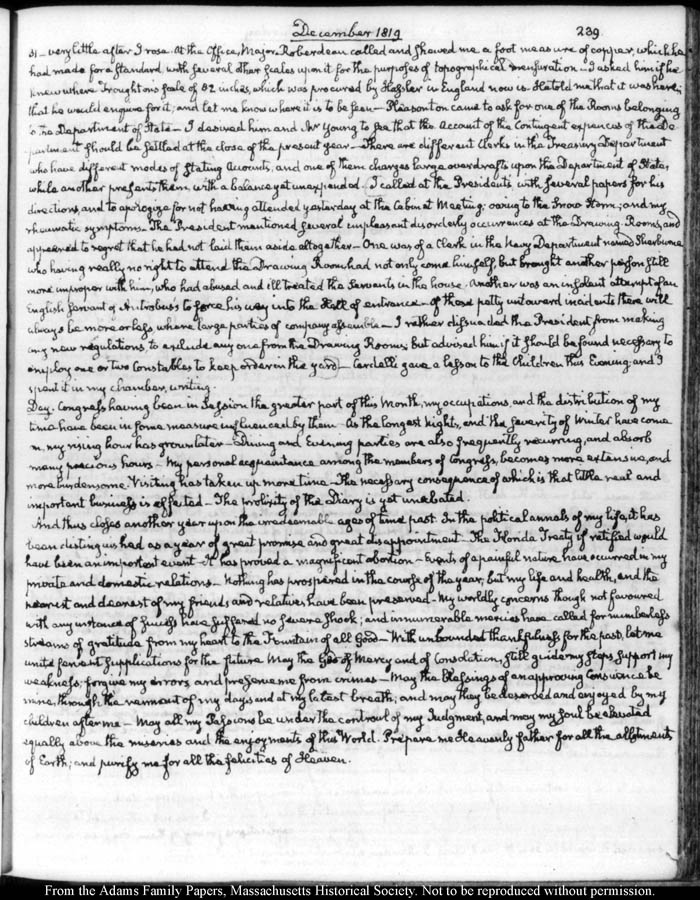 December 1819
239.
31 - very little after I rose. At the Office, Major Roberdeau called and shewed me a foot measure of copper, which he
had made for a Standard with several other scales upon it for the purposes of topographical mensuration - I asked him if he
knew where Troughtons scale of 82 inches, which was procured by Hassler in England now is. He told me that it was here;
that he would enquire for it; and let me know where it is to be seen - Pleasonton came to ask for one of the Rooms belonging
to the Department of State - I desired him and Mr Young to see that the Account of the Contingent expences of the De-
partment should be settled at the close of the present year - There are different Clerks in the Treasury Department
who have different modes of stating Accounts, and one of them charges large overdrafts upon the Department of State,
while another presents them, with a balance yet unexpended - I called at the Presidents with several papers for his
directions, and to apologize for not having attended yesterday at the Cabinet Meeting; owing to the Snow Storm; and my
rheumatic symptoms. The President mentioned several unpleasant disorderly occurrences at the Drawing Rooms, and
appeared to regret that he had not laid them aside altogether - One was of a Clerk in the Navy Department named Sherburne
who having really no right to attend the Drawing Room had not only come himself but brought another person still
more improper with him, who had abused and ill treated the Servants in the house. Another was an insolent attempt of an
English Servant of Antrobus's to force his way into the Hall of entrance - Of those petty untoward incidents there will
always be more or less where large parties of company assemble - I rather dissuaded the President from making
any new regulations, to exclude any one from the Drawing Rooms, but advised him if it should be found necessary to
employ one or two Constables to keep order in the yard - Cardelli gave a lesson to the Children this Evening and I
spent it in my chamber, writing.
Day. Congress having been in Session the greater part of this Month, my occupations, and the distribution of my
time have been in some measure influenced by them - As the longest Nights, and the severity of Winter have come
on, my rising hour has grown later - Dining and Evening parties are also frequently recurring, and absorb
many precious hours - My personal acquaintance among the members of Congress, becomes more extensive, and
more burdensome. Visiting has taken up more time - The necessary consequence of which is that little real and
important business is effected - The prolixity of the Diary is yet unabated.
And thus closes another year upon the irredeemable ages of time past. In the political annals of my life, it has
been distinguished as a year of great promise and great disappointment. The Florida Treaty if ratified would
have been an important event - It has proved a magnificent abortion - Events of a painful nature have occurred in my
private and domestic relations - Nothing has prospered in the course of the year; but my life and health, and the
nearest and dearest of my friends and relatives have been preserved - My worldly concerns though not favoured
with any instance of success have suffered no severe shock; and innumerable mercies have called for numberless
streams of gratitude from my heart to the Fountain of all Good - With unbounded thankfulness for the past, let me
unite fervent supplications for the future May the God of Mercy and of Consolation, still guide my steps, support my
weakness, forgive my errors, and preserve me from crimes - May the Blessings of an approving Conscience be
mine, through the remnant of my days and at my latest breath; and may they be deserved and enjoyed by my
children after me - May all my Passions be under the controul of my Judgment, and may my soul be elevated
equally above the miseries and the enjoyments of this World. Prepare me Heavenly father for all the allotments
of Earth; and purify me for all the felicities of Heaven.
From the Adams Family Papers, Massachusetts Historical Society. Not to be reproduced without permission.